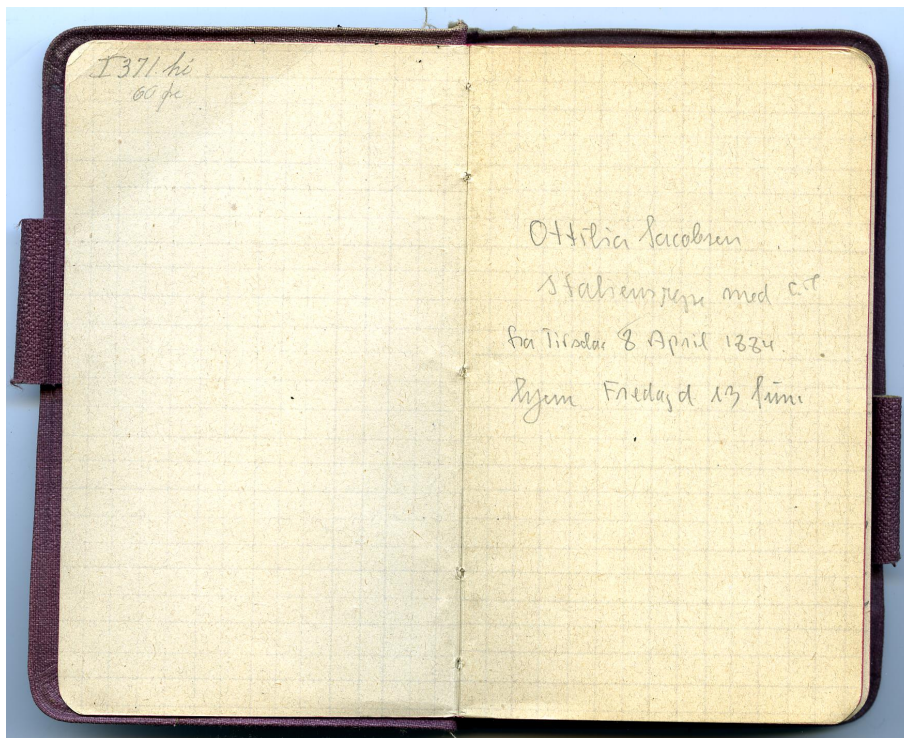 I 371. hi
60 øre
Ottilia Jacobsen
Italiensrejse med
fra Tirsdag 8 April 1884.
hjem Fredag d 13 Juni